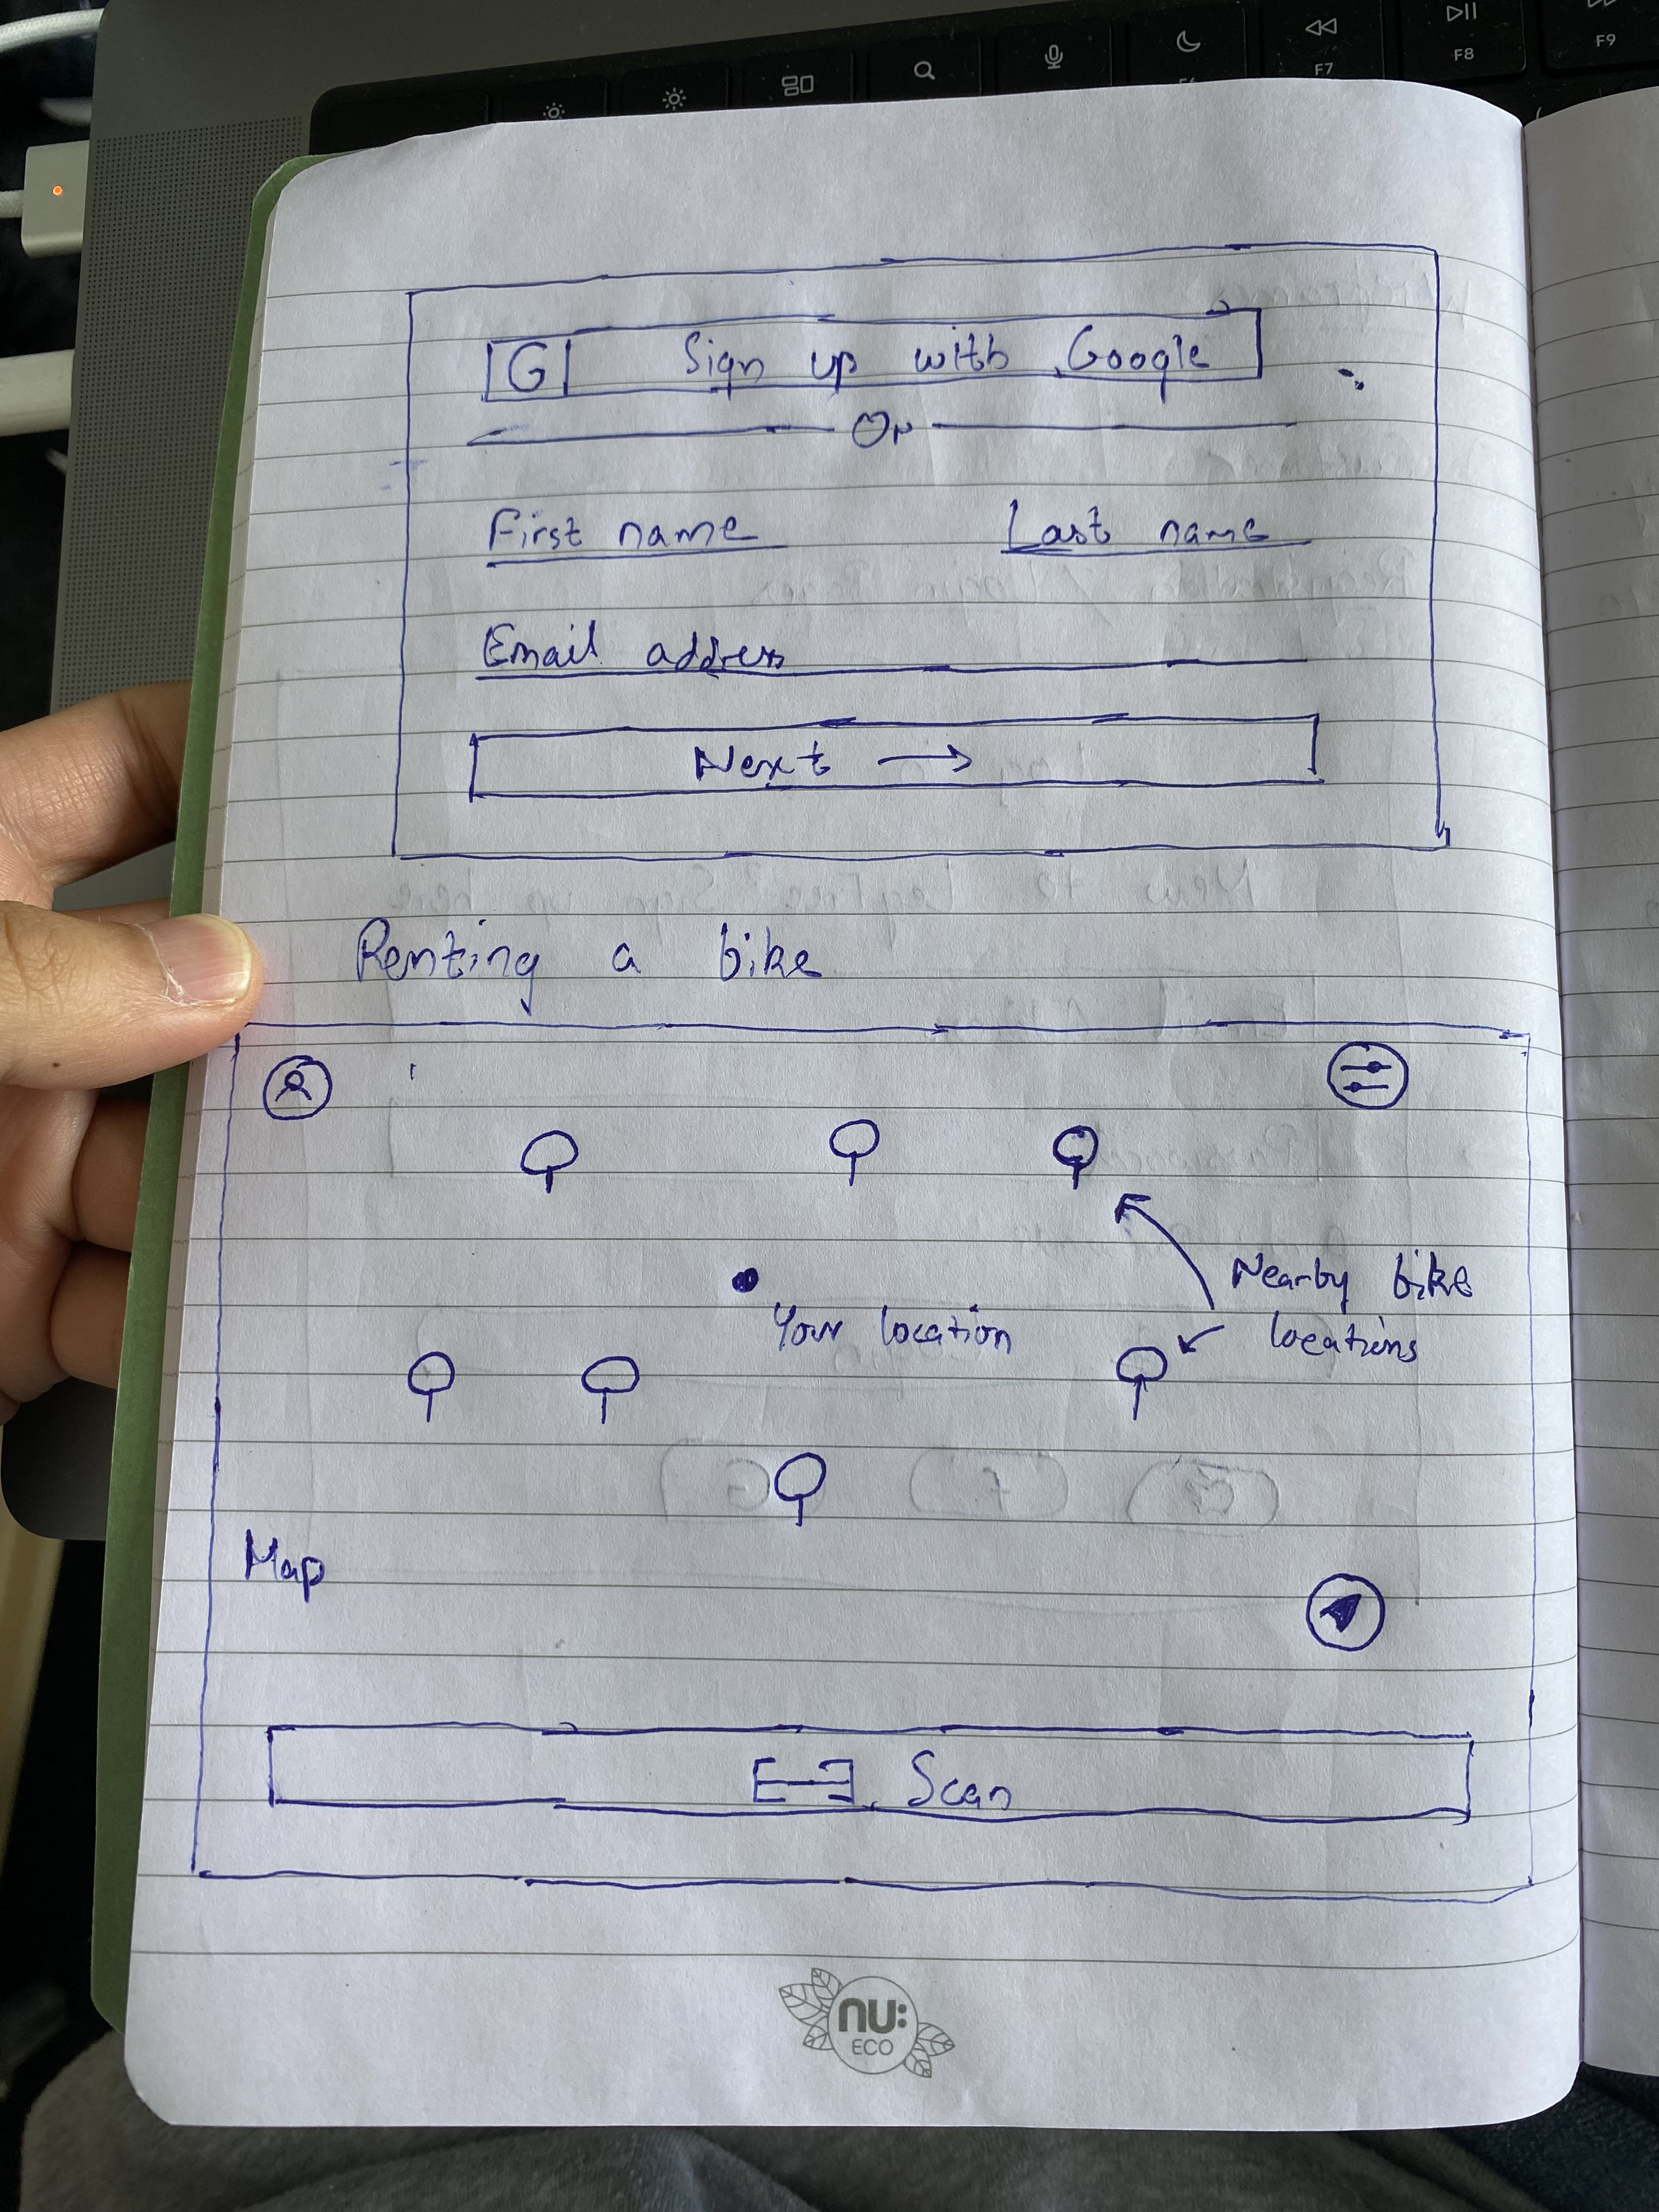 F7
F8
F9
G Sign up with Google
Or
First name Last name
Email address
Next →
New to LegFree? Sign up here
Renting a bike
Nearby bike
locations
Your location
Map
Scan
nu:
ECO